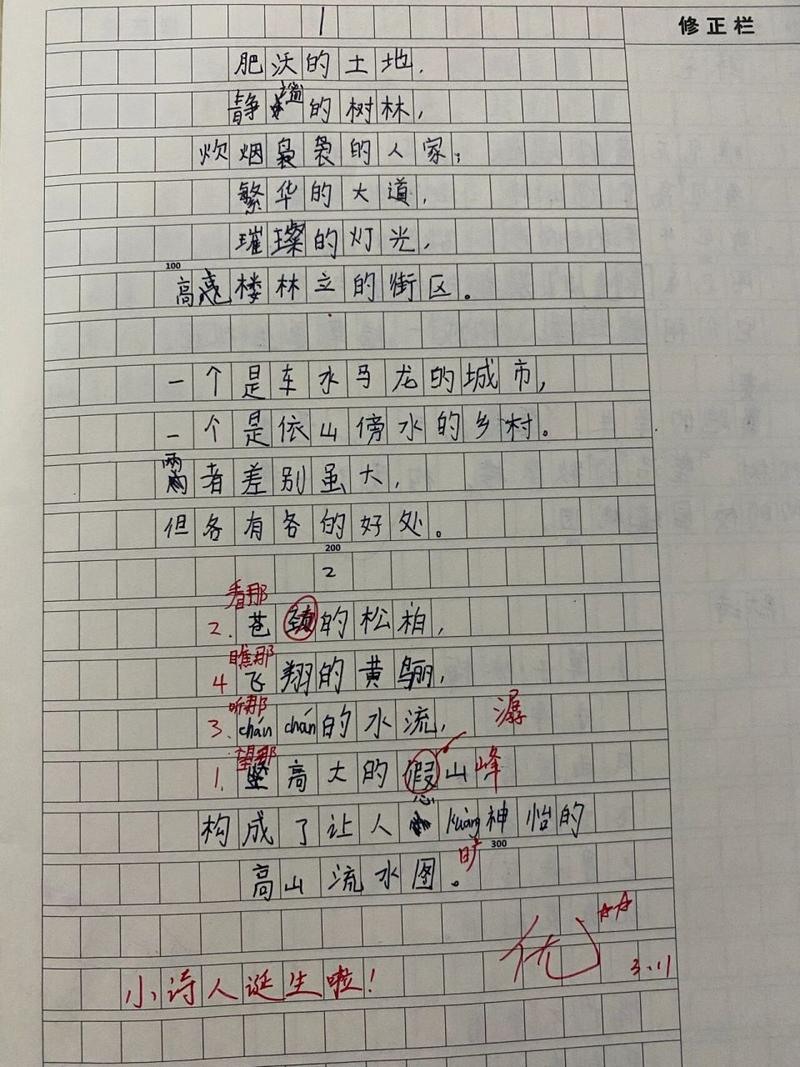 修正栏
1
肥沃的土地,
静谧的树林,
炊烟袅袅的人家;
繁华的大道,
璀璨的灯光,
100
高楼林立的街区。
一个是车水马龙的城市,
一个是依山傍水的乡村。
两者差别虽大,
但各有各的好处。
200
2
看那
2.苍的松柏,
瞧那
4飞翔的黄鹂,
听那
3.chán chán的水流, 潺
望那
1.高大的假山峰
构成了让人心kuàng神怡的
旷
300
高山流水图。
优
小诗人诞生啦!
3.11